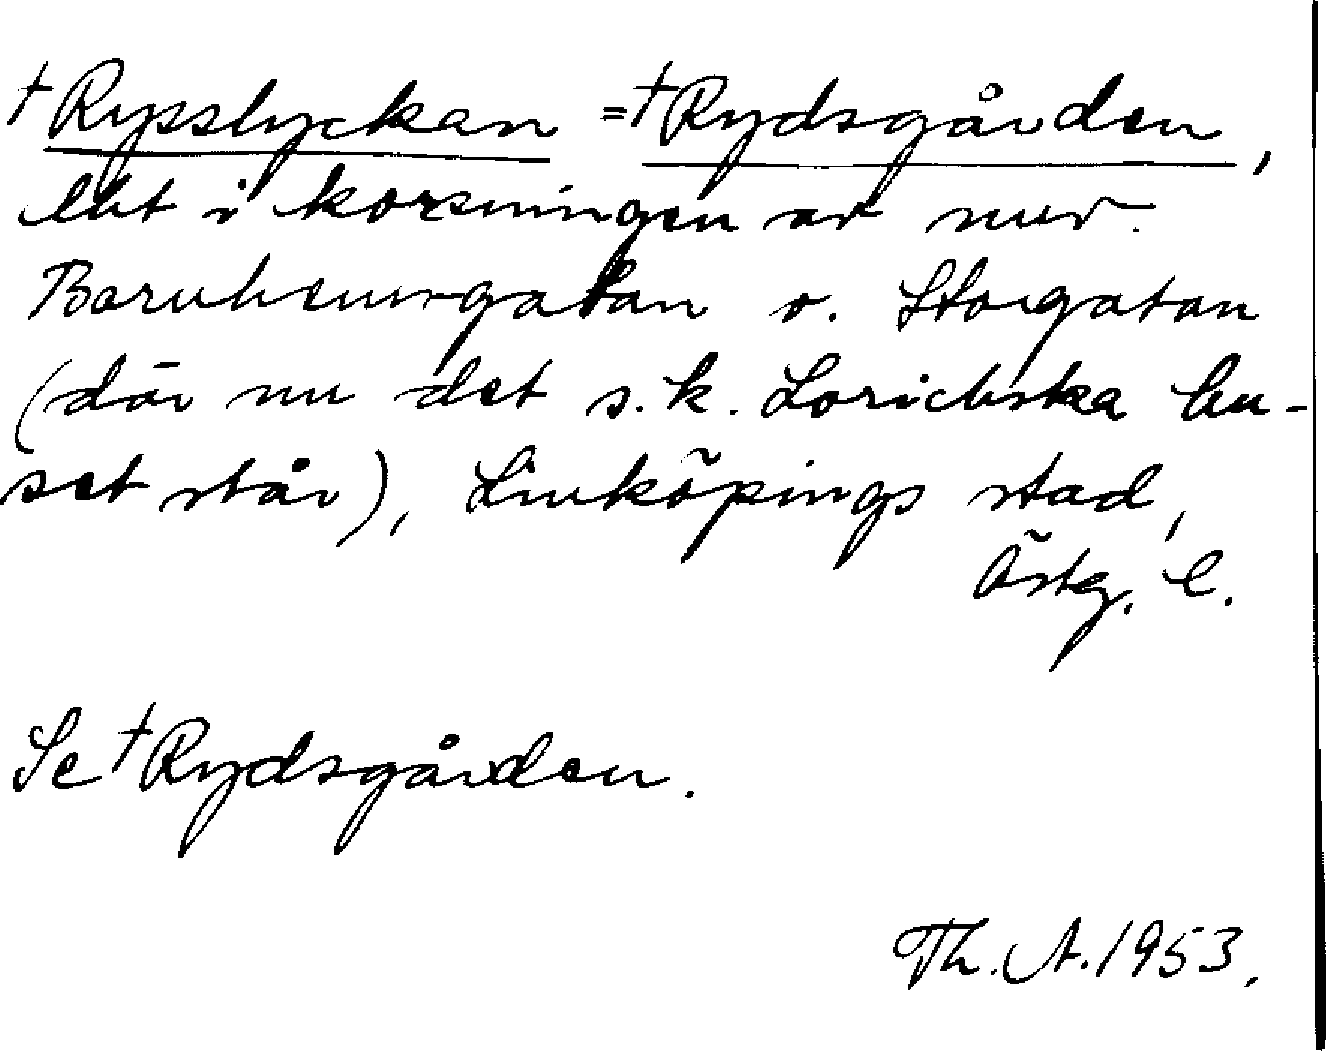 †Rysslyckan = †Rydsgården,
lht i korsningen av nuv.
Barnhemsgatan o. Storgatan
(där nu det s.k. Lorichska hu-
set står), Linköpings stad,
Östg. l.
Se †Rydsgården.
Th. A. 1953.